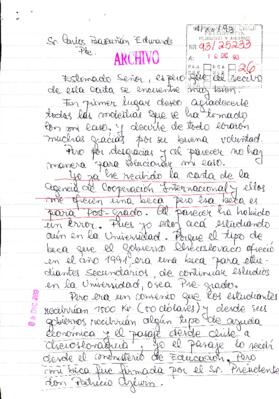 Sr. Carlos Bascuñan Edwards
Pte.
ARCHIVO
93/25233
26
Estimado Señor, espero que al recibo
de esta carta se encuentre muy bien.
En primer lugar deseo agradecerle
todas las molestias que se ha tomado
con mi caso. Y decirle de todo corazón
muchas gracias por su buena voluntad.
Pero por desgracia al parecer no hay
manera para solucionar mi caso.
Yo ya he recibido la carta de la
Agencia de Cooperación Internacional y ellos
me ofrecen una beca pero esa beca es
para post-grado. Al parecer ha habido
un error. Pues yo estoy acá estudiando
aún en la Universidad. Porque el tipo de
beca que el Gobierno Checoslovaco ofreció
en el año 1991, era una beca para estu-
diantes secundarios, de continuar estudios
en la Universidad, o sea Pre-grado.
Pero era un convenio que los estudiantes
recibirían 1500 Kčs (70 dólares) y desde sus
gobiernos recibirían algún tipo de ayuda
económica y el pasaje desde Chile a
Checoslovaquia, yo el pasaje lo recibí
desde el Ministerio de Educación. Pero
mi beca fue firmada por el Sr. Presidente
don Patricio Aylwin.